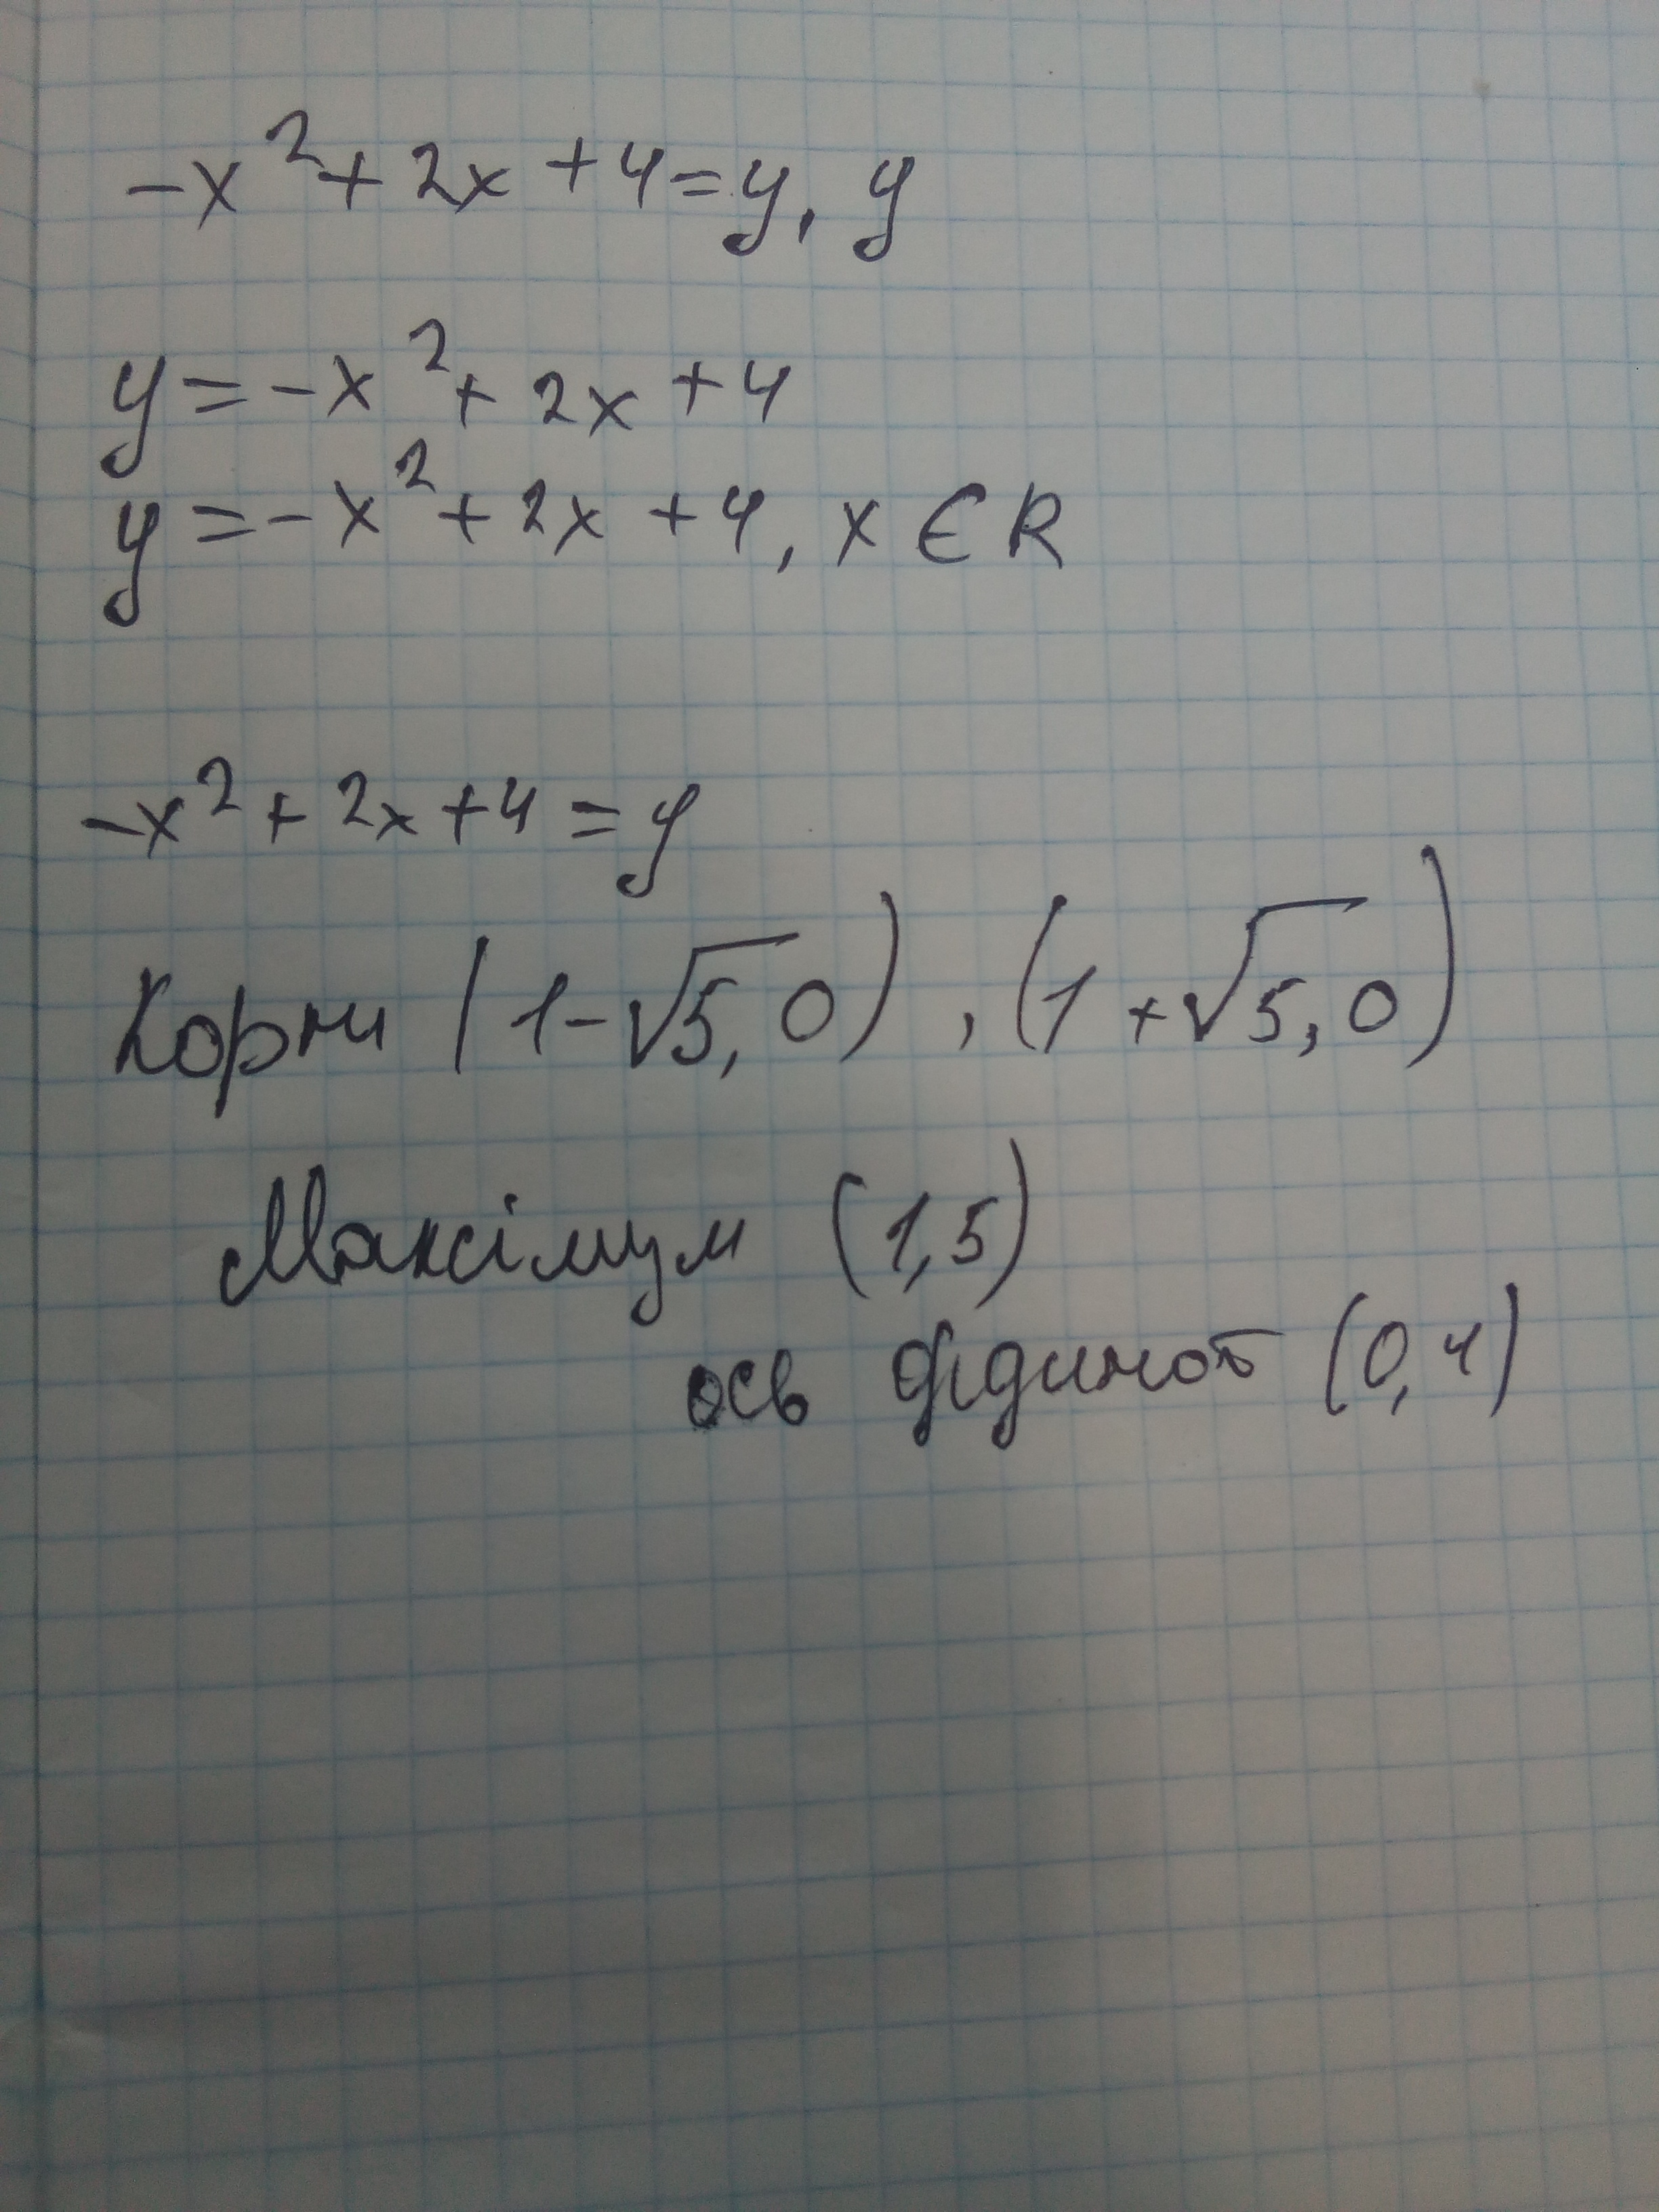 -x²+2x+4=y, y
y=-x²+2x+4
y=-x²+2x+4, x ∈ R
-x²+2x+4=y
Корни (1-√5,0), (1+√5,0)
Максімум (1,5)
ось (0,4)